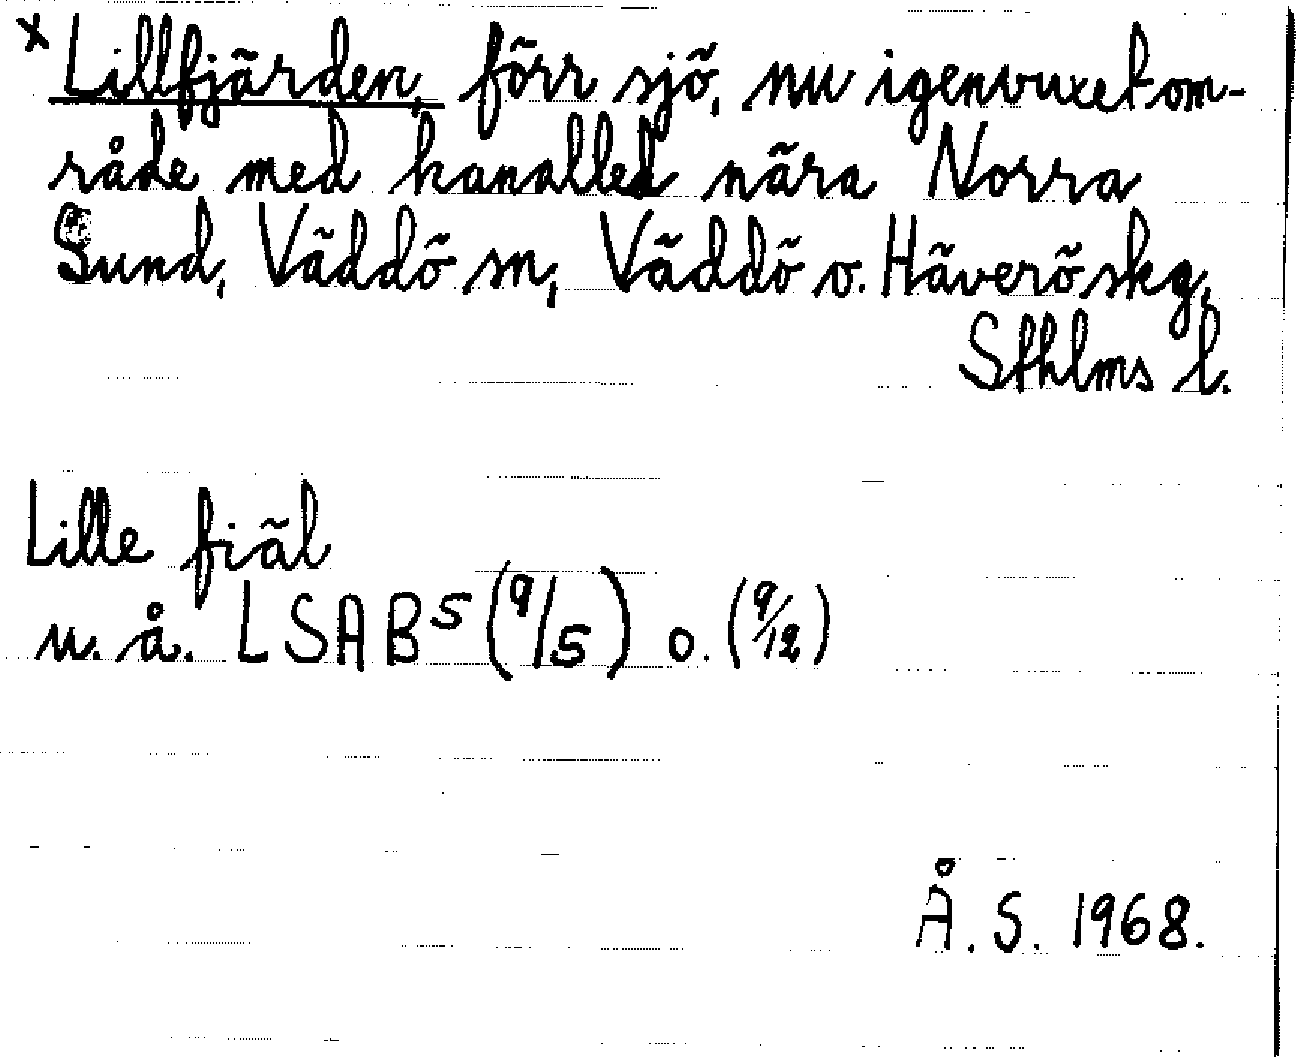 x Lillfjärden, förr sjö, nu igenvuxet om-
råde med kanalled nära Norra
Sund, Väddö sn, Väddö o. Häverö skg,
Sthlms l.
Lille fiäl
u. å. LSA B5 (9/5) o. (9/12)
Å. S. 1968.